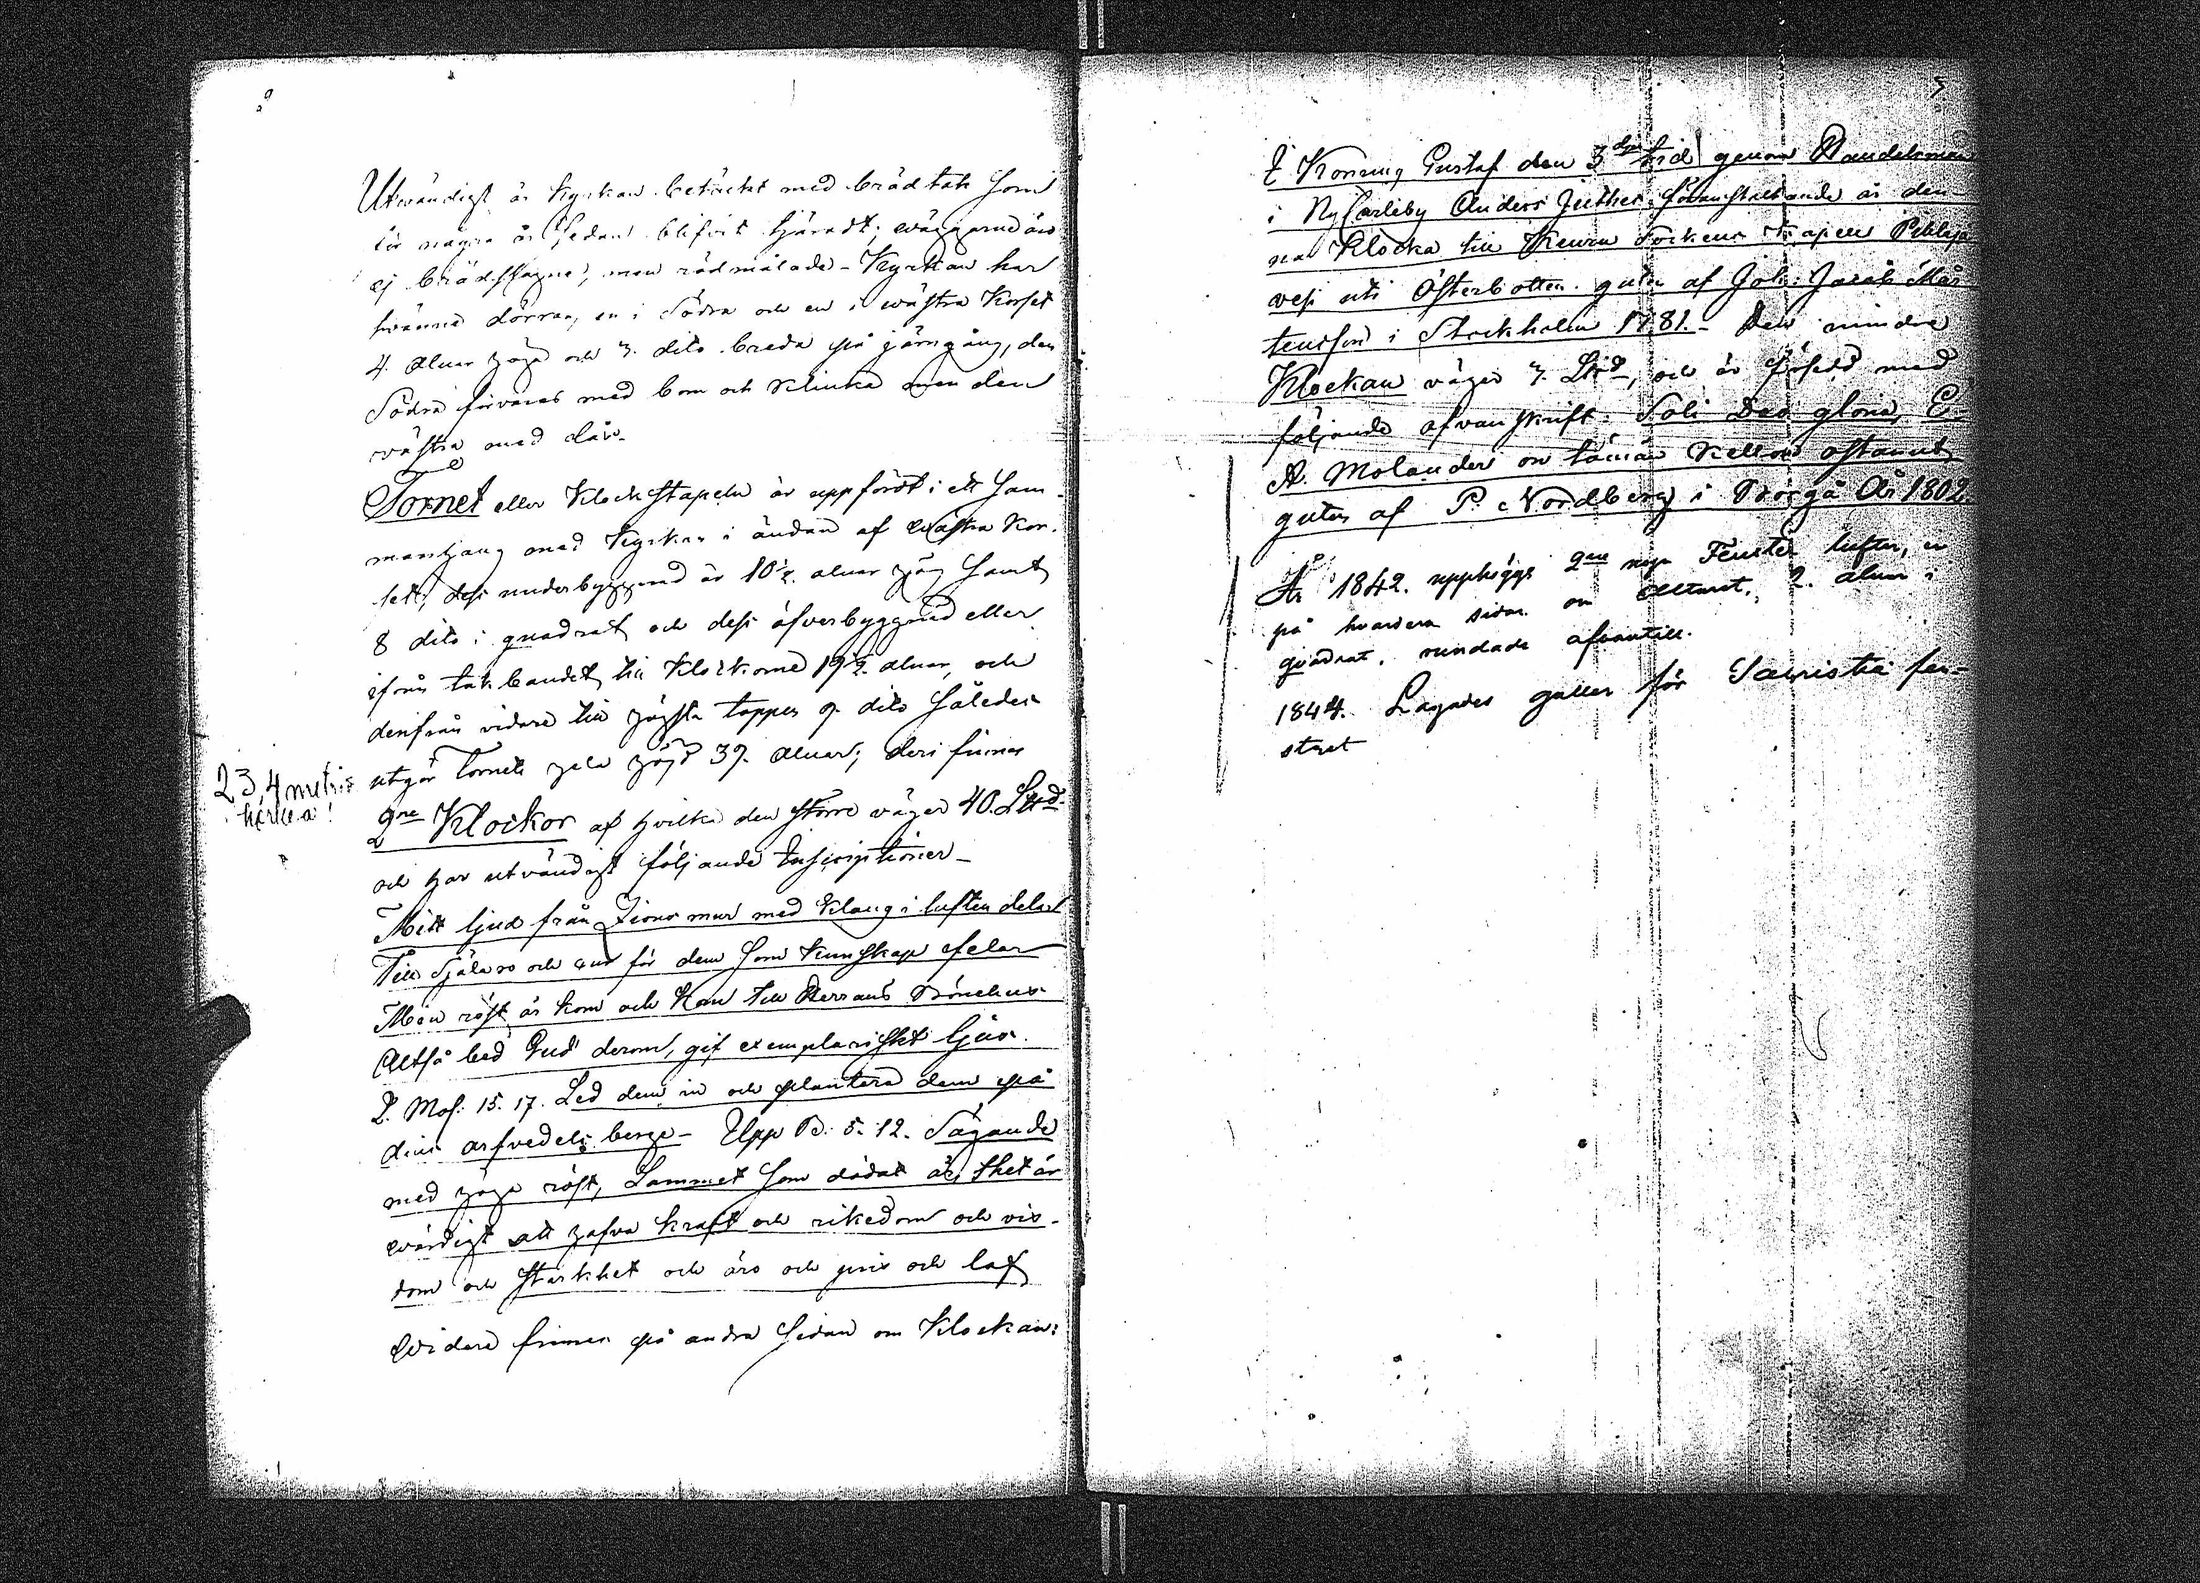 Utvändigt är Kyrkan betäckt med brädtak som
för några år sedan blifvit tjäradt; väggarne äro
ej brädslagne, men rödmålade - Kyrkan har
tvänne dörrar, en i Södra och en i västra Korset
4. alnar höga och 3. dito breda på järngång, den
Södra förvaras med bom och klinka men den
västra med lås.
Tornet eller Klockstapeln är uppfördt i ett sam-
manhang med Kyrkan i ändan af västra Kor-
set, dess underbyggnad är 10½ alnar hög samt
8 dito i quadrat och dess öfverbyggnad eller
ifrån takbandet till Klockorne 19½ alnar, och
derifrån vidare till högsta toppen 9 dito således
utgör Tornets hela höjd 39. alnar; deri finnes
23,4 metriä
korkea!
2ne Klockor af hvilka den större väger 40. L℔d
och har utvändigt följande Inscriptioner -
Mitt ljud från Zions mur med klang i luften delar
Till Själaro och för dem som kunskap felar
Min röst är kom och kom till Herrans Bönehus
Altså bed Gud derom, gif exemplariskt ljus.
2. Mos: 15. 17. Led dem in och plantera dem på
dins arfvedels berge - Upp B. 5. 12. Sägande
med höga röst, Lammet som dödat är, thet är
värdigt att hafva kraft och rikedom och vis-
dom och starkhet och äro och pris och laf
Vidare finnes på andra sidan om Klockan:
I Konung Gustaf den 3dje tid genom Handelsman
i NyCarleby Anders Juthes föranstaltande är den-
na Klocka till Keuru Sockens Kapell Pihlaja-
vesi uti Österbotten. guten af Joh: Jacob Mår-
tenson i Stockholm 1781. - Den mindre
Klockan väger 7. L℔d, och är försedd med
följande ofvanskrift: Soli Deo gloria, E.
A. Molander on tämän Kellon ostanut
guten af P. Nordberg i Borgå År 1802
År 1842. upphöggs 2ne nya Fenster lufter, en
på hvardera sidan om Altaret, 2. alnar i
quadrat, rundade ofvantill.
1844. Lagades galler för Sacristie fen-
stret